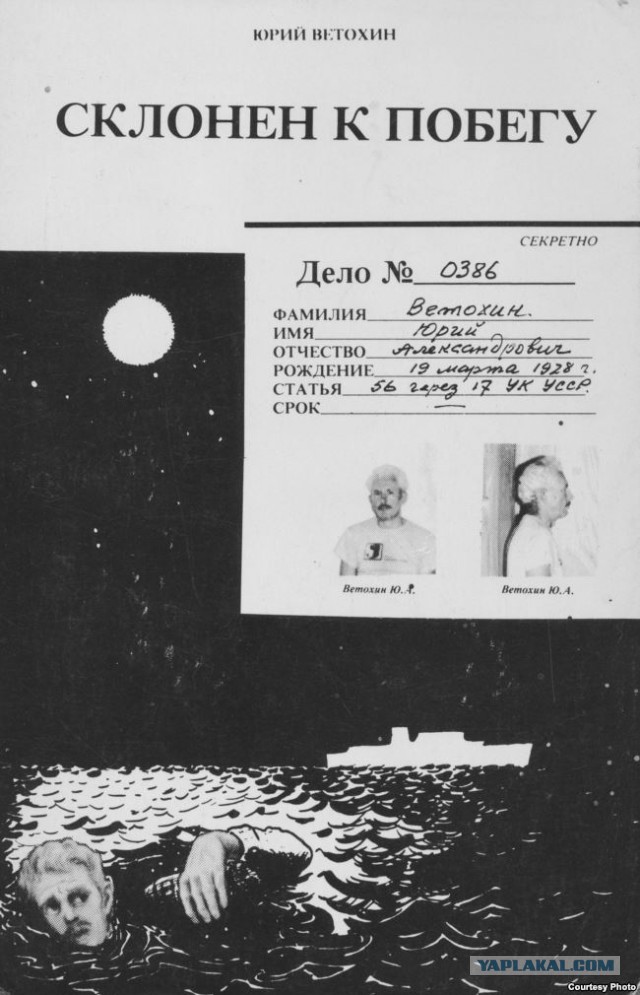 ЮРИЙ ВЕТОХИН
СКЛОНЕН К ПОБЕГУ
СЕКРЕТНО
Дело № 0386
ФАМИЛИЯ Ветохин.
ИМЯ Юрий
ОТЧЕСТВО Александрович
РОЖДЕНИЕ 19 марта 1928 г.
СТАТЬЯ 56 через 17 УК УССР.
СРОК —
Ветохин Ю.А.
Ветохин Ю.А.
YAPLAKAL.COM
Courtesy Photo